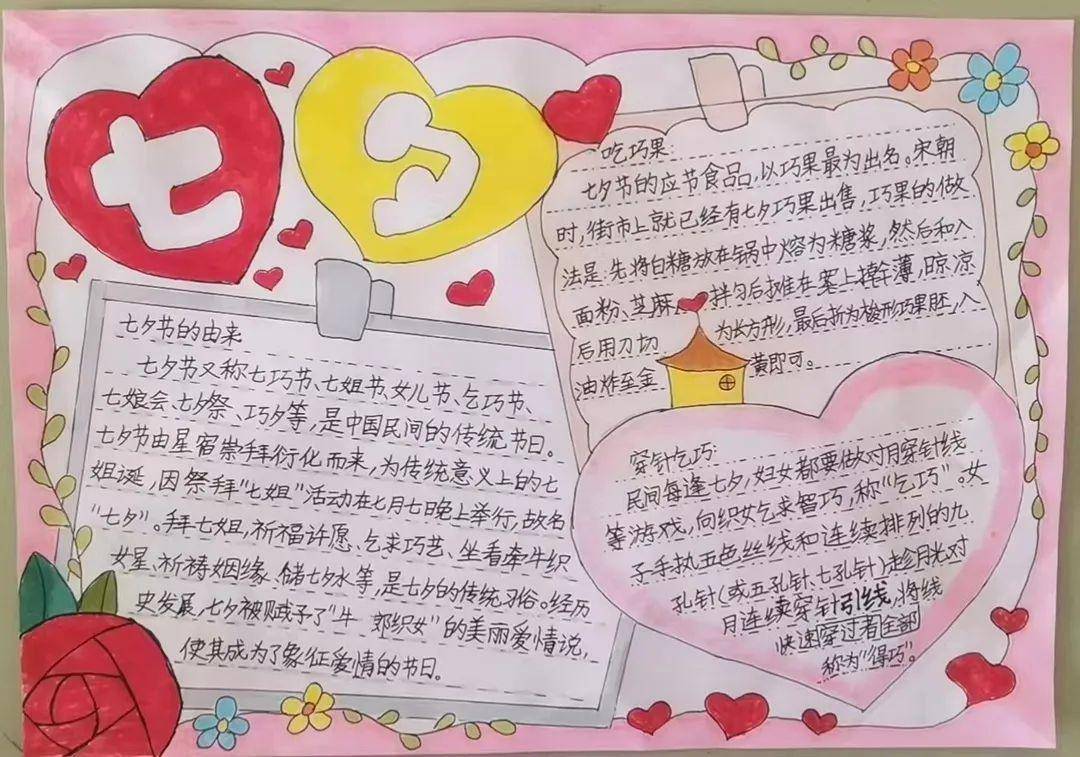 七夕
七夕节的由来
七夕节又称七巧节、七姐节、女儿节、乞巧节、
七娘会、七夕祭、巧夕等,是中国民间的传统节日。
七夕节由星宿崇拜衍化而来,为传统意义上的七
姐诞,因祭拜“七姐”活动在七月七晚上举行,故名
“七夕”。拜七姐,祈福许愿、乞求巧艺、坐看牵牛织
女星、祈祷姻缘、储七夕水等,是七夕的传统习俗。经历
史发展,七夕被赋予了“牛郎织女”的美丽爱情说,
使其成为了象征爱情的节日。
吃巧果:
七夕节的应节食品,以巧果最为出名。宋朝
时,街市上就已经有七夕巧果出售,巧果的做
法是:先将白糖放在锅中火熔为糖浆,然后和入
面粉、芝麻,拌匀后摊在 上擀薄,晾凉
后用刀切为长方形,最后折为梭形巧果胚,入
油炸至金黄即可。
穿针乞巧:
民间每逢七夕,妇女都要做对月穿针线
等游戏,向织女乞求智巧,称“乞巧”。女
子手执五色丝线和连续排列的九
孔针(或五孔针、七孔针)趁月光对
月连续穿针引线,将线
快速穿过者全部
称为“得巧”。